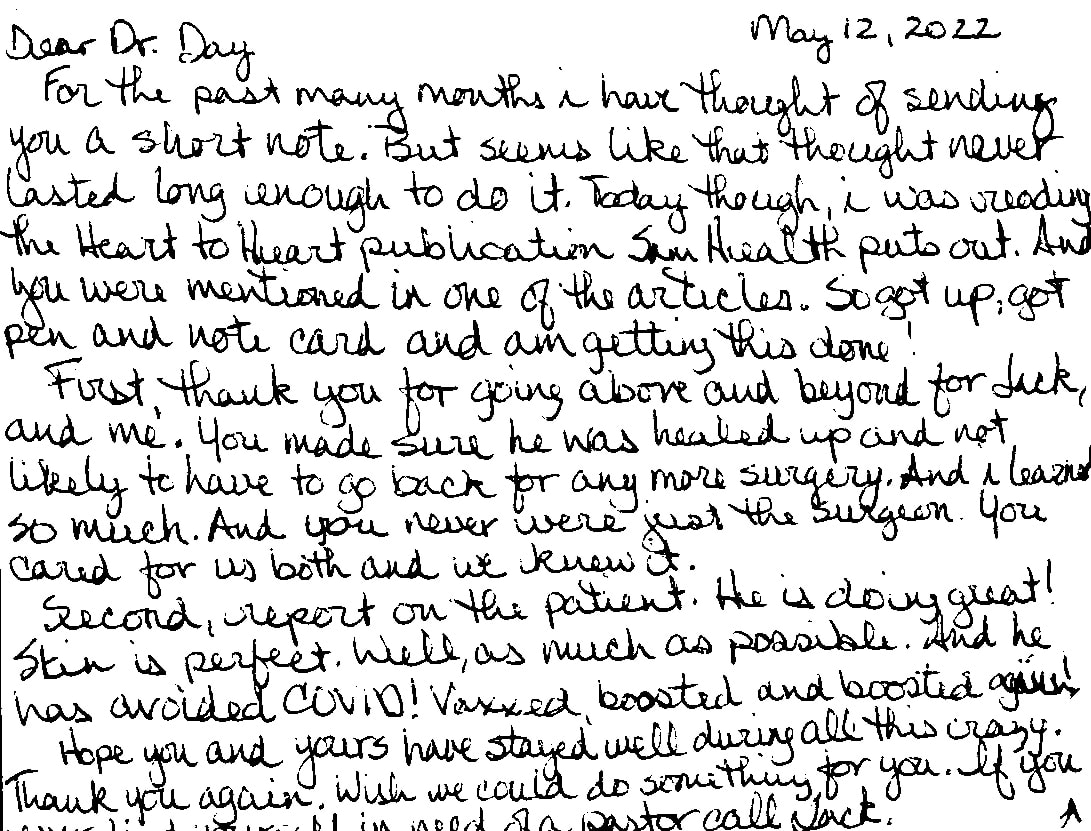 May 12, 2022
Dear Dr. Day
For the past many months i have thought of sending
you a short note. But seems like that thought never
lasted long enough to do it. Today though, i was reading
the Heart to Heart publication Sun Health puts out. And
you were mentioned in one of the articles. So got up, got
pen and note card and am getting this done!
First, thank you for going above and beyond for Jack,
and me. You made sure he was healed up and not
likely to have to go back for any more surgery. And i learned
so much. And you never were just the surgeon. You
cared for us both and we knew it.
Second, report on the patient. He is doing great!
Skin is perfect. Well, as much as possible. And he
has avoided COVID! Vaxxed, boosted and boosted again!
Hope you and yours have stayed well during all this crazy.
Thank you again. Wish we could do something for you. If you
in need of a pastor call Jack.